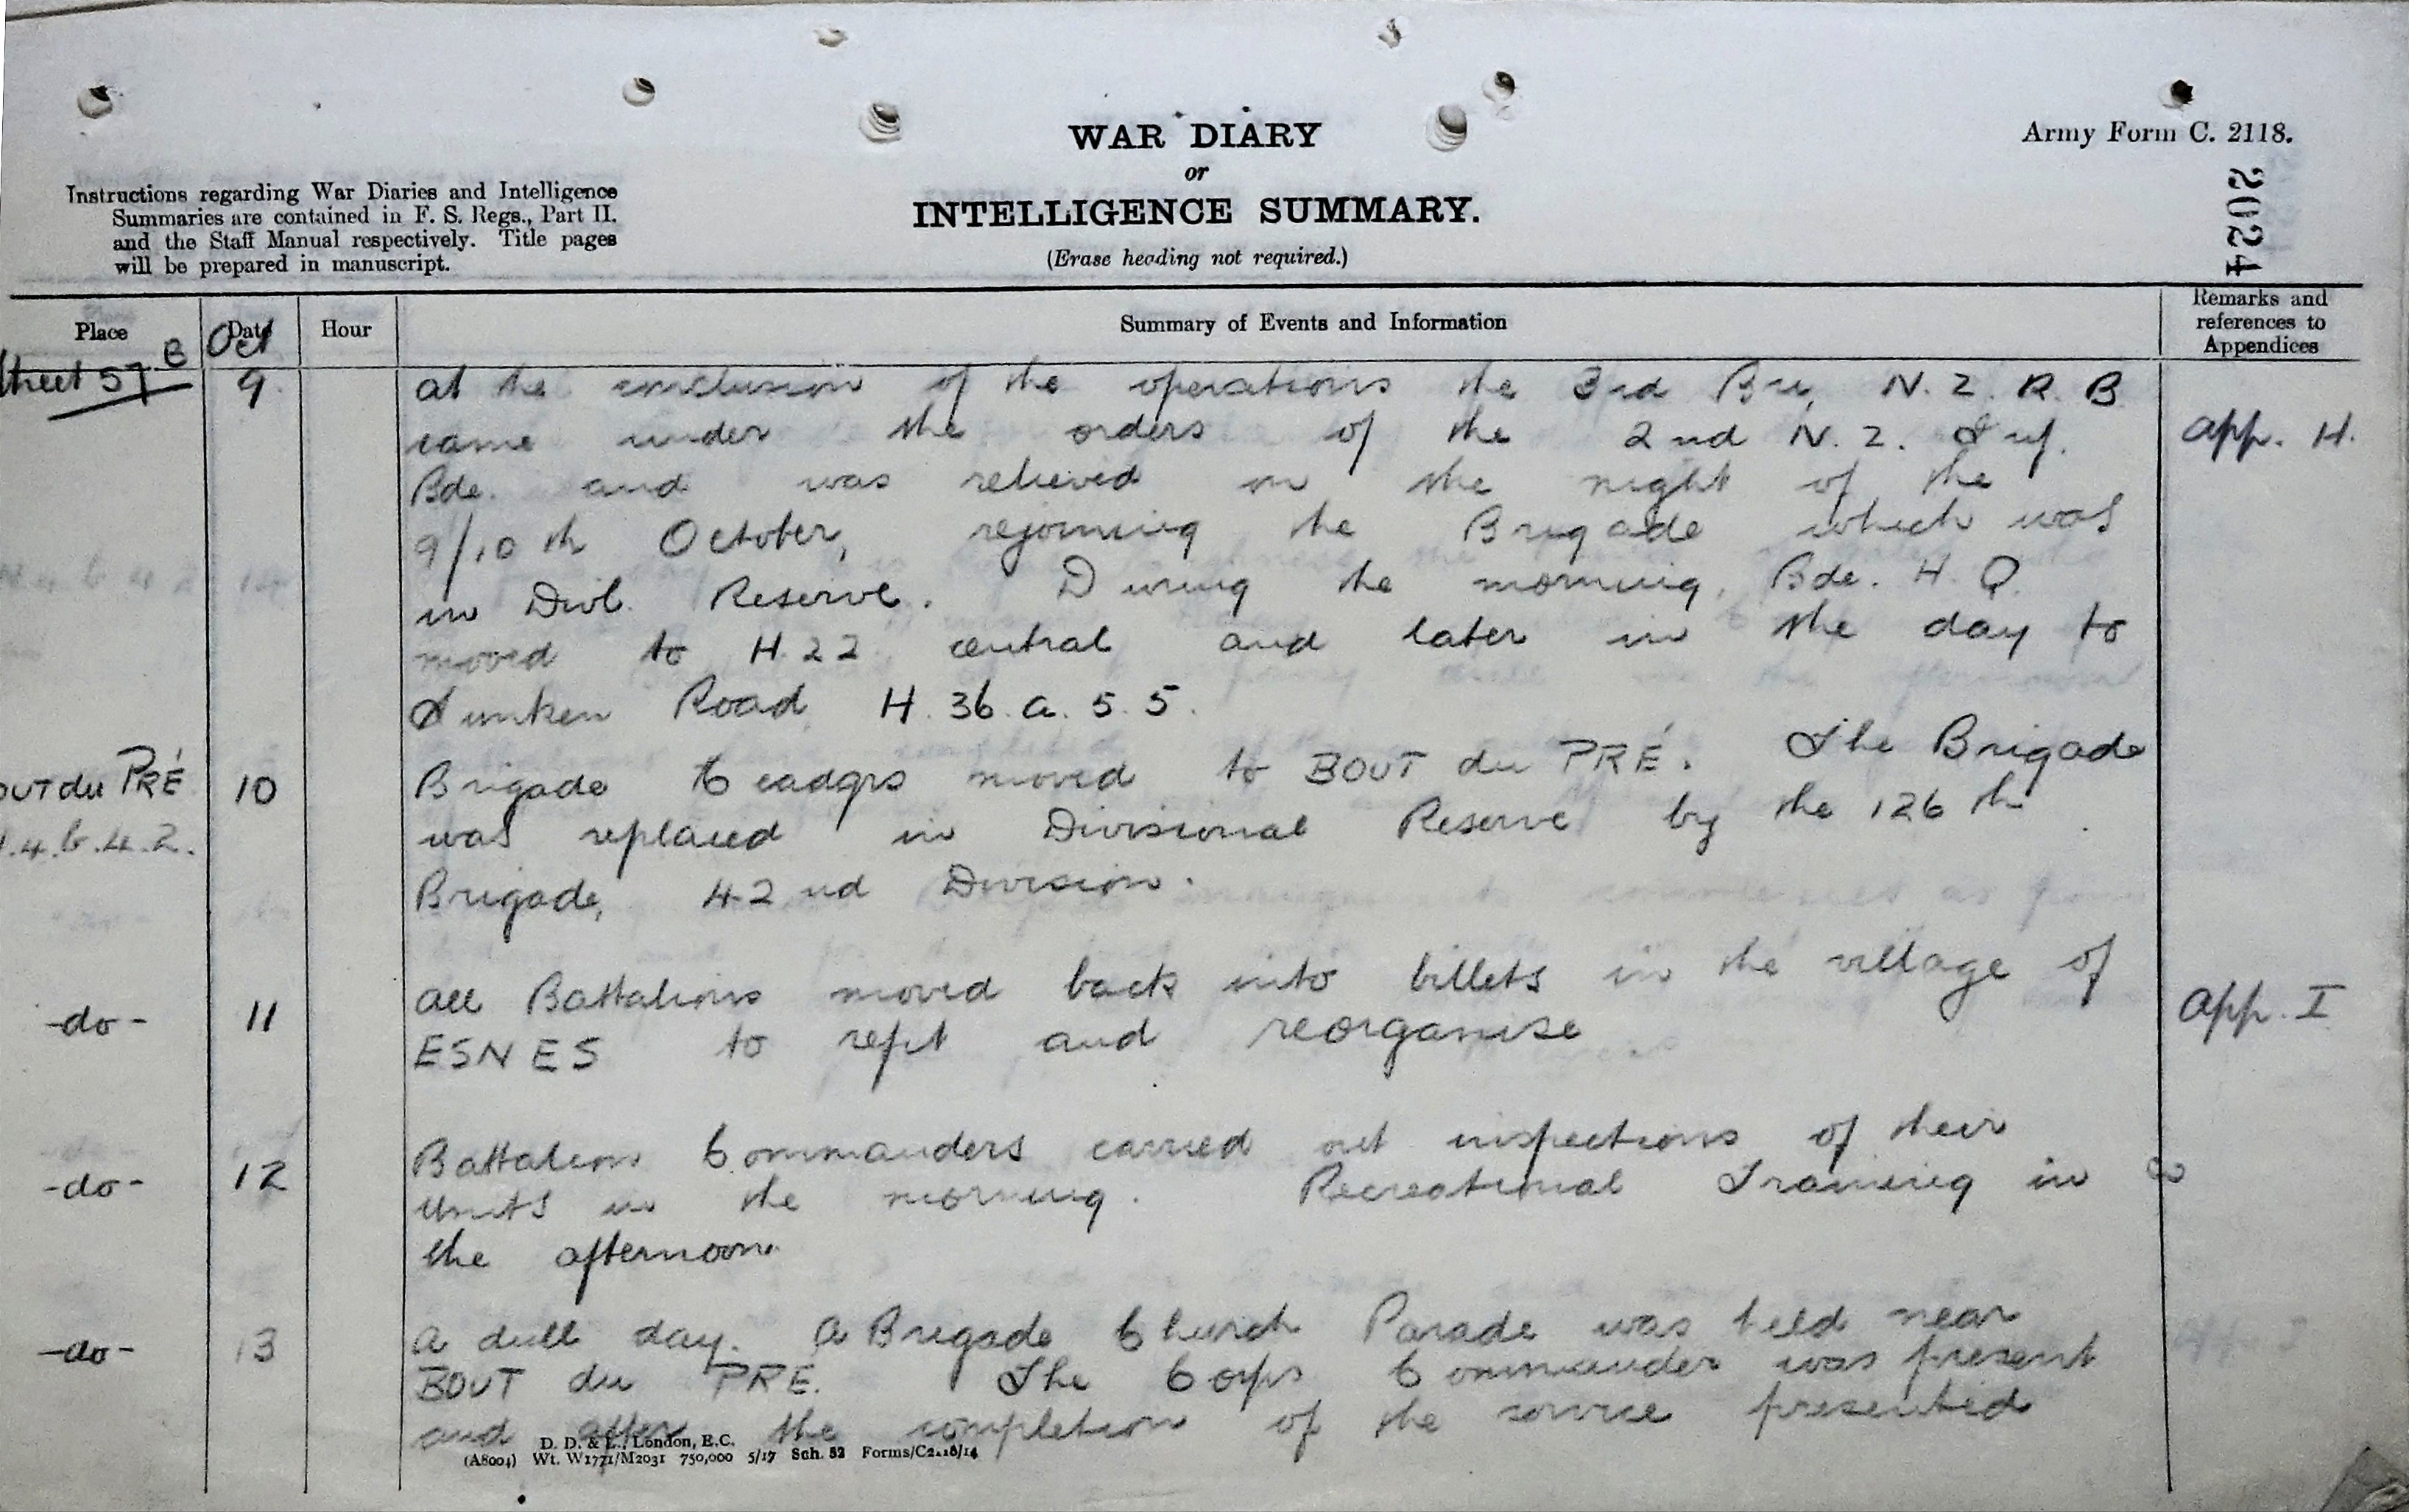 WAR DIARY
or
INTELLIGENCE SUMMARY.
(Erase heading not required.)
Army Form C. 2118.
2024
Instructions regarding War Diaries and Intelligence
Summaries are contained in F. S. Regs., Part II.
and the Staff Manual respectively. Title pages
will be prepared in manuscript.
Place Date Hour Summary of Events and Information Remarks and references to Appendices
Oct
Sheet 57 B 9 at the conclusion of the operations the 3rd Bn, N. Z. R. B
came under the orders of the 2nd N. Z. Inf. App. H.
Bde. and was relieved on the night of the
9/10th October, rejoining the Brigade which was
in Divl. Reserve. During the morning, Bde. H. Q.
moved to H.22 central and later in the day to
Sunken Road H. 36. a. 5. 5.
OUT du PRÉ 10 Brigade Headqrs moved to BOUT du PRÉ. The Brigade
.4.b.4.2. was replaced in Divisional Reserve by the 126th
Brigade, 42nd Division.
-do- 11 All Battalions moved back into billets in the village of App. I
ESNES to refit and reorganise
-do- 12 Battalion Commanders carried out inspections of their
Units in the morning. Recreational Training in
the afternoon.
-do- 13 A dull day. A Brigade Church Parade was held near
BOUT du PRE. The Corps Commander was present
and after the completion of the service presented
D. D. & L., London, E.C.
(A8004) Wt. W1771/M2031 750,000 5/17 Sch. 52 Forms/C2118/14